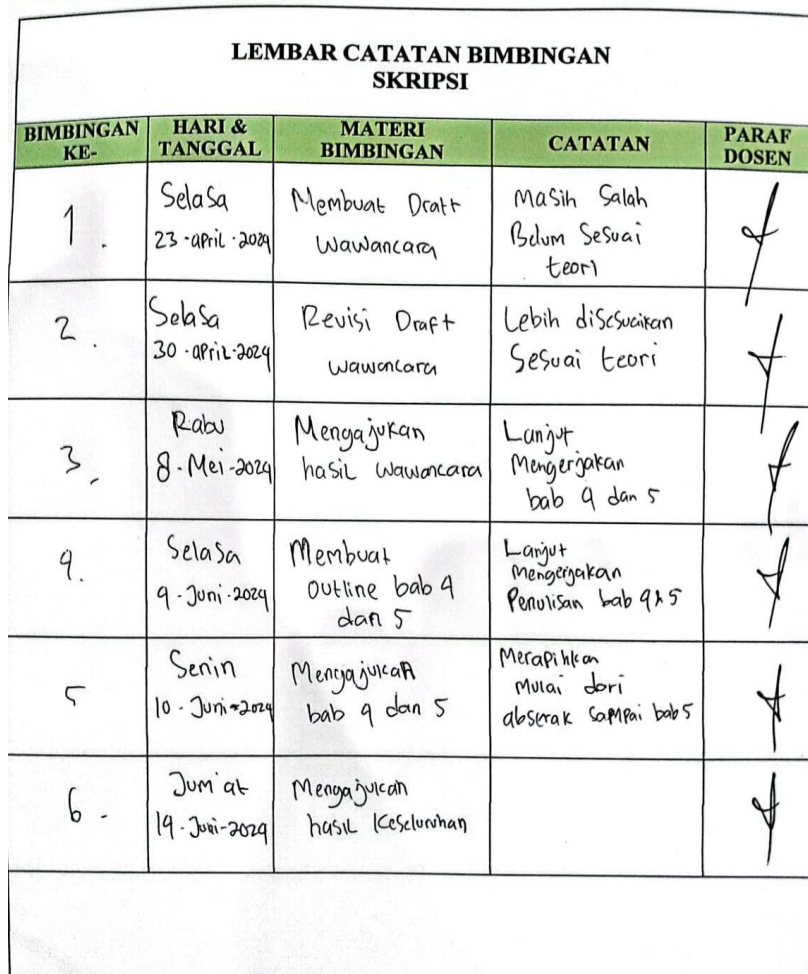 LEMBAR CATATAN BIMBINGAN
SKRIPSI
BIMBINGAN KE-
HARI & TANGGAL
MATERI BIMBINGAN
CATATAN
PARAF DOSEN
1.
Selasa
23-april-2024
Membuat Draft
wawancara
Masih Salah
Belum Sesuai
teori
2.
Selasa
30-april-2024
Revisi Draft
wawancara
Lebih disesuaikan
Sesuai teori
3.
Rabu
8-Mei-2024
Mengajukan
hasil wawancara
Lanjut
Mengerjakan
bab 4 dan 5
4.
Selasa
4-Juni-2024
Membuat
outline bab 4
dan 5
Lanjut
Mengerjakan
Penulisan bab 4&5
5
Senin
10-Juni-2024
Mengajukan
bab 4 dan 5
Merapihkan
Mulai dari
abserak sampai bab 5
6-
Jum'at
14-Juni-2024
Mengajukan
hasil keseluruhan